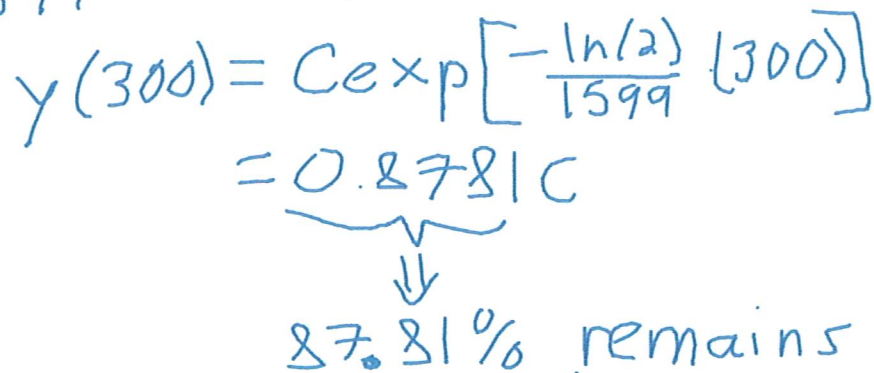 y(300) = C exp[-ln(2)/1599 (300)]
= 0.8781 C
⇓
87.81% remains